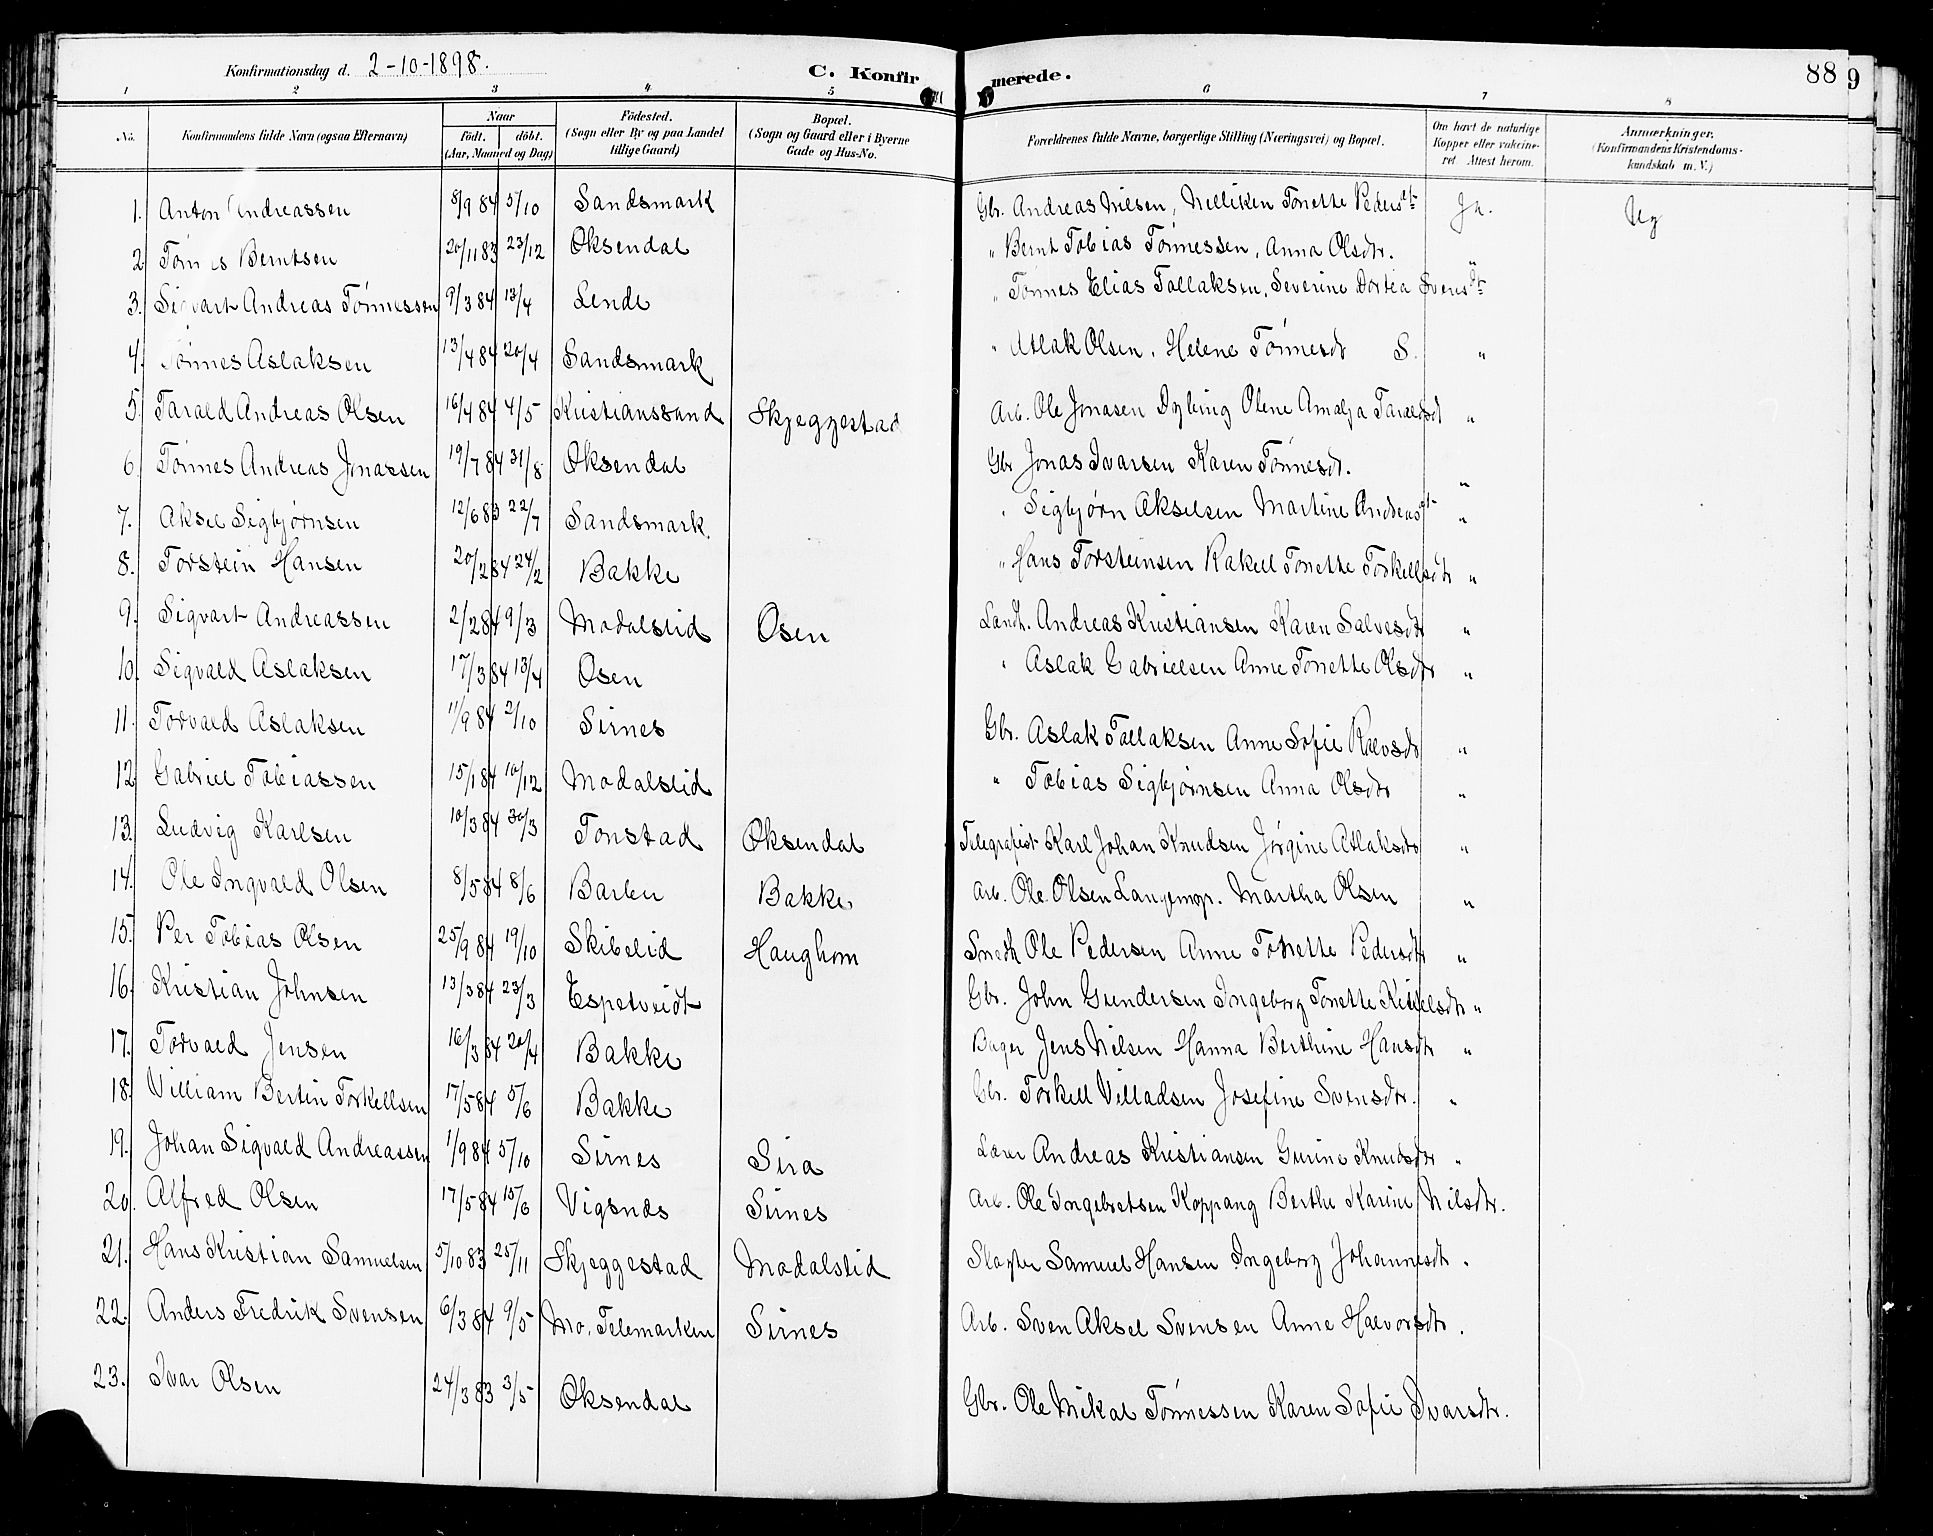 Konfirmationsdag d. 2-10-1898.
C. Konfirmerede.
88 9
1 2 3 4 5 6 7 8
No. Konfirmandens fulde Navn (ogsaa Efternavn) Naar födt. döbt. (Aar, Maaned og Dag) Födested. (Sogn eller By og paa Landet tillige Gaard) Bopæl. (Sogn og Gaard eller i Byerne Gade og Hus-No. Forældrenes fulde Navne, borgerlige Stilling (Næringsvei) og Bopæl. Om havt de naturlige Kopper eller vaccineret. Attest herom. Anmærkninger. (Konfirmandens Kristendomskundskab m. V.)
1. Anton Andreassen 8/9 84 5/10 Sandsmark Gbr. Andreas Nilsen, Tonette Pedersdtr Ja. Ug
2 Tønnes Berntsen 20/11 83 23/12 Øksendal " Bernt Tobias Tønnessen, Anna Olsdtr. "
3. Sigvart Andreas Tønnessen 9/3 84 13/4 Lende " Tønnes Elias Tallaksen, Severine Dortea Svensdtr
4. Tønnes Aslaksen 13/4 84 20/4 Sandsmark " Atlak Olsen, Helene Tønnesdtr S. "
5. Tarald Andreas Olsen 16/4 84 4/5 Kristianssand Skjeggestad Arb. Ole Jonasen Dybing Olene Amalja Taraldsdt "
6. Tønnes Andreas Jonassen 19/7 84 31/8 Øksendal Gbr Jonas Ivarsen Karen Tønnesdr. "
7. Aksel Sigbjørnsen 12/6 83 22/7 Sandsmark. " Sigbjørn Akselsen Martine Andreasdt "
8. Torstein Hansen 20/2 84 24/2 Bakke " Hans Torsteinsen Rakel Tonette Torkellsdtr "
9. Sigvart Andreassen 2/2 84 9/3 Modalslid Osen Landh. Andreas Kristiansen Karen Salvesdtr "
10. Sigvald Aslaksen 17/3 84 13/4 Osen " Aslak Gabrielsen Anne Tonette Olsdtr "
11. Torvald Aslaksen 11/9 84 2/10 Sirnes Gbr. Aslak Tallaksen Anne Sofie Ralvsdtr "
12 Gabriel Tobiassen 15/1 84 10/12 Modalslid " Tobias Sigbjørnsen Anna Olsdtr "
13. Ludvig Karlsen 10/3 84 30/3 Tonstad Øksendal Telegrafist Karl Johan Knudsen Jørgine Atlaksdtr "
14. Ole Ingvald Olsen 8/5 84 8/6 Barlen Bakke Arb. Ole Olsen Martha Olsen "
15. Per Tobias Olsen 25/9 84 19/10 Skibelid Haughom Smedh Ole Pedersen Anne Tonette Pedersdtr "
16. Kristian Johnsen 13/3 84 23/3 Espetveidt Gbr. John Gundersen Ingeborg Tonette Ketilsdtr "
17. Torvald Jensen 16/3 84 20/4 Bakke Bager Jens Nilsen Hanna Berthine Hansdtr "
18. Villiam Bertin Torkellsen 17/5 84 5/6 Bakke Gbr. Torkell Villadsen Josefine Svensdtr. "
19. Johan Sigvald Andreassen 1/9 84 5/10 Sirnes Sira Lærer Andreas Kristiansen Gurine Knudsdtr "
20. Alfred Olsen 17/5 84 15/6 Vigsnæs Sirnes Arb. Ole Ingebretsen Koppang Berthe Karine Nilsdtr.
21. Hans Kristian Samuelsen 5/10 83 25/11 Skjeggestad Modalslid Slagter Samuel Hansen Ingeborg Johannesdtr.
22. Anders Fredrik Svensen 6/3 84 9/5 Mo, Telemarken Sirnes Arb. Sven Aksel Svensen Anne Halvorsdtr.
23. Ivar Olsen 24/3 83 3/5 Øksendal Gbr. Ole Mikal Tønnessen Karen Sofie Ivarsdtr.